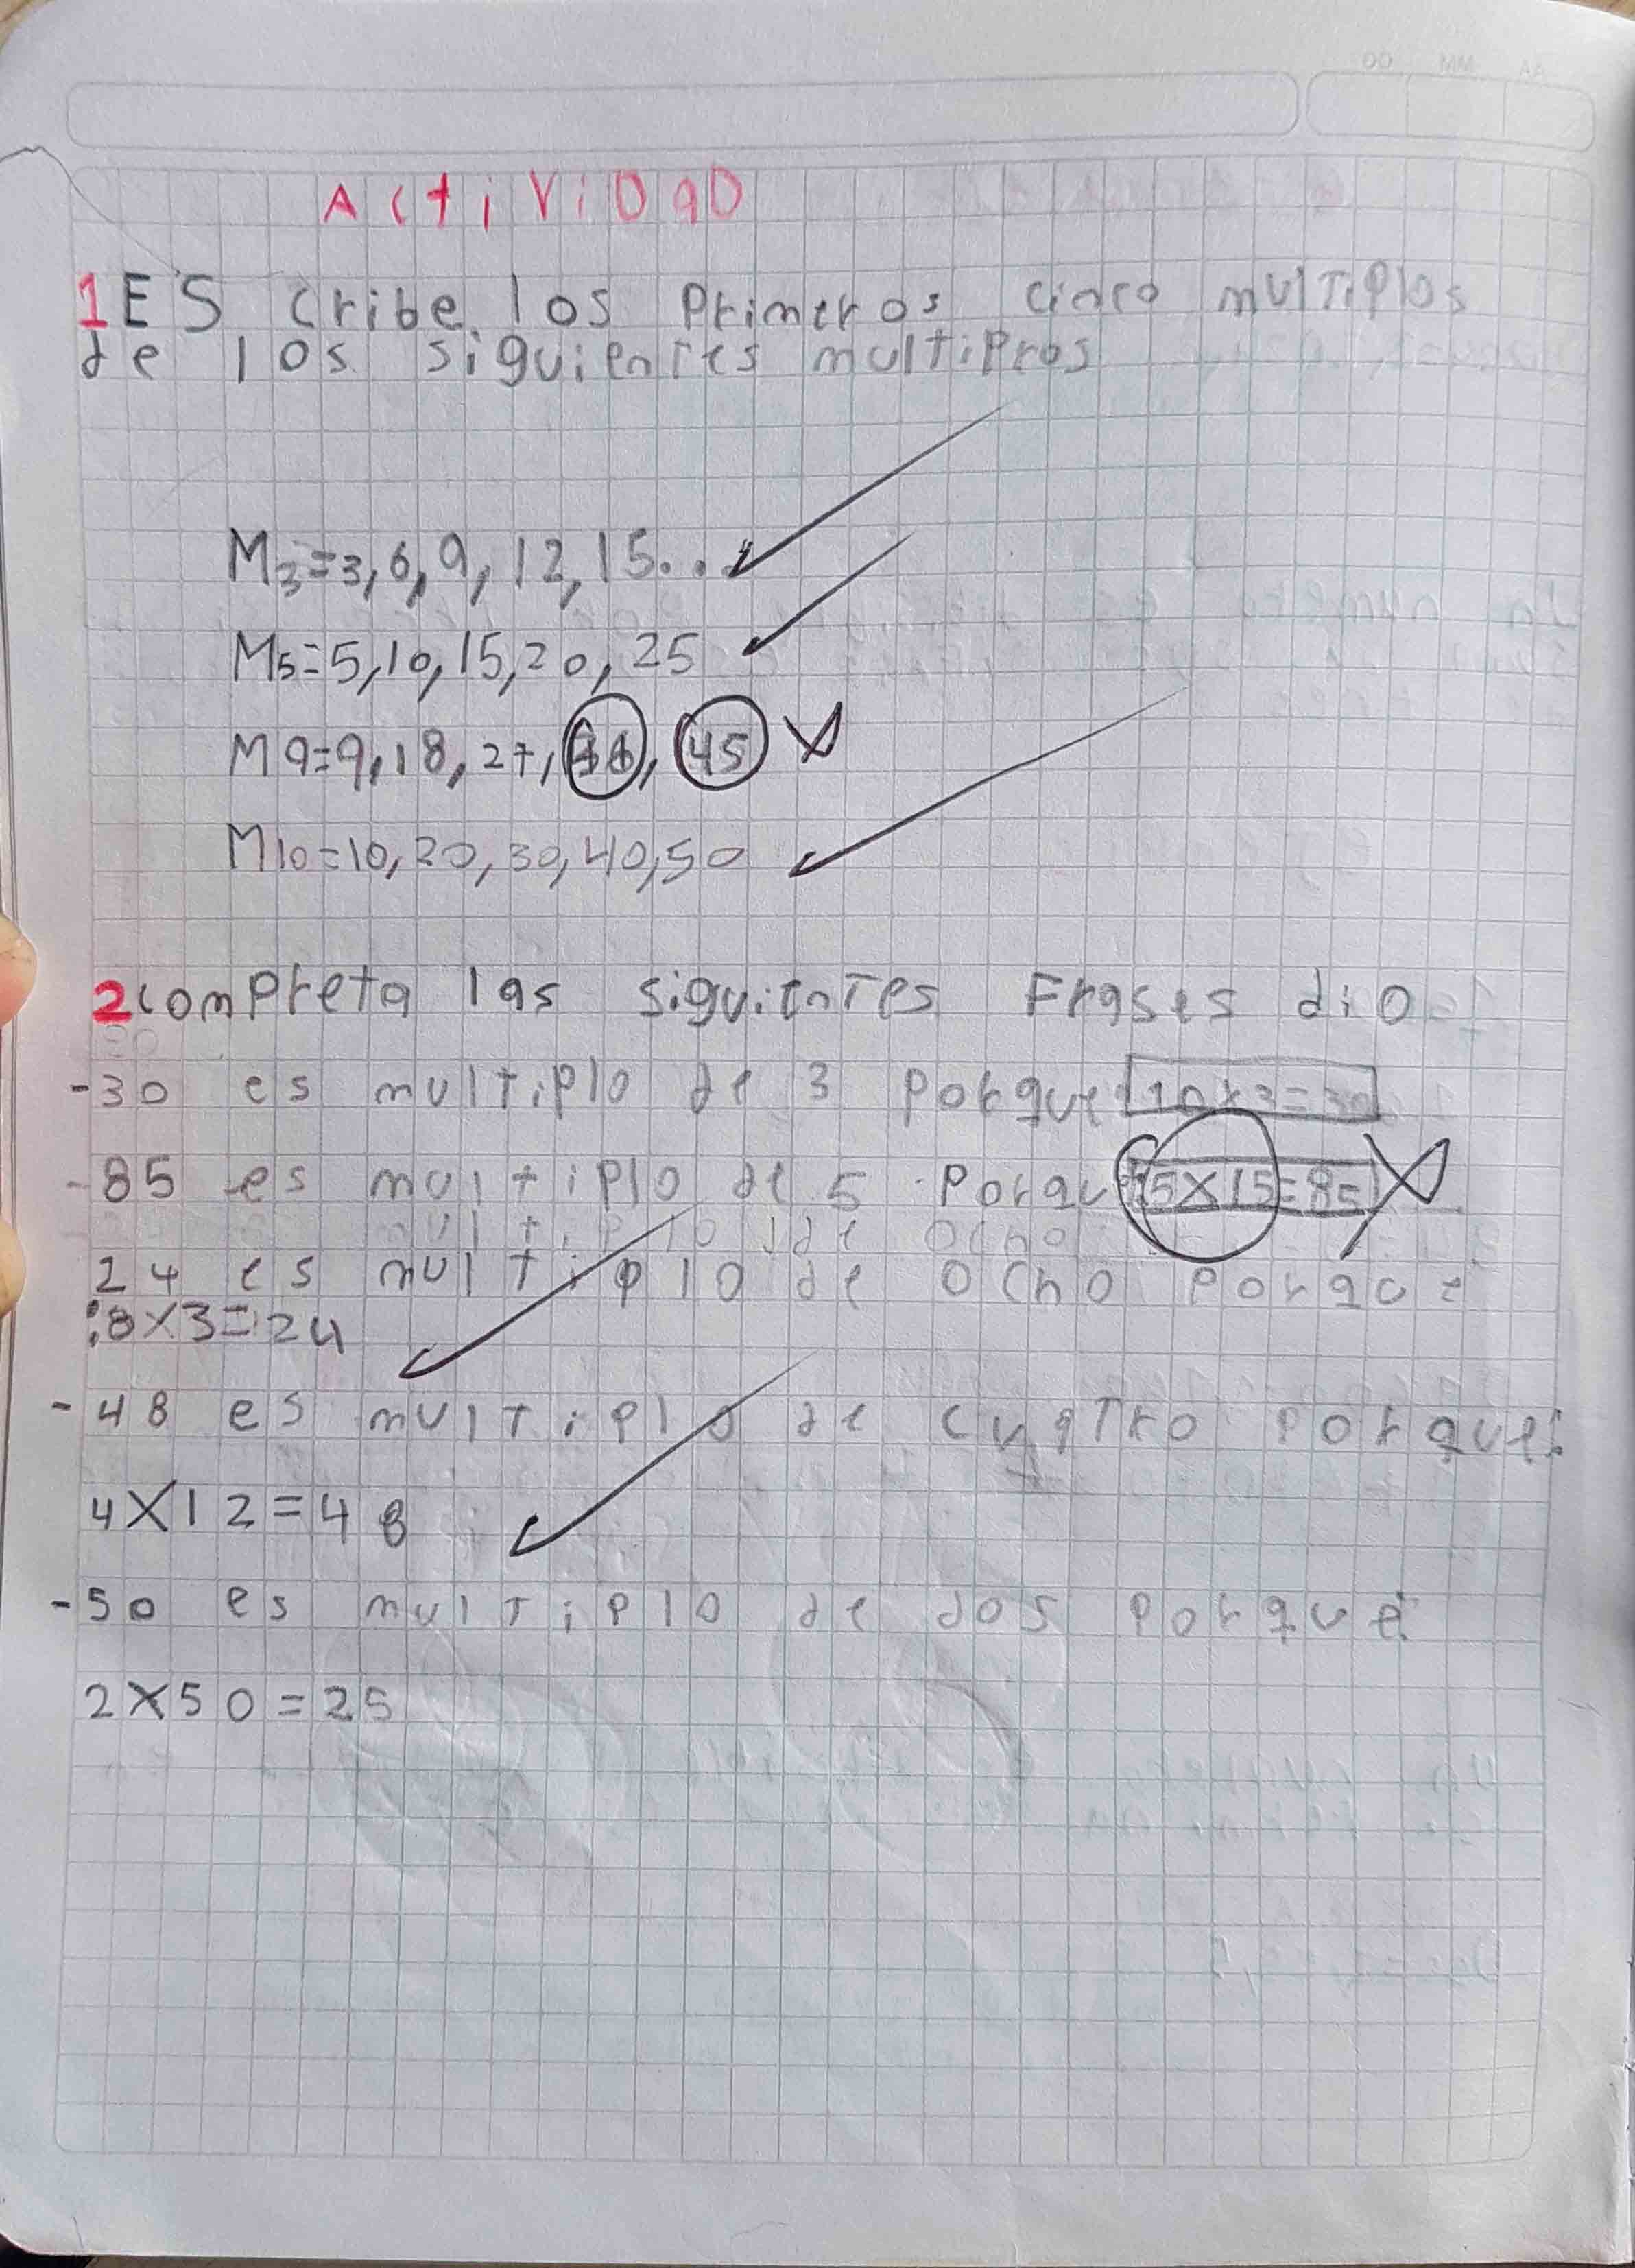 DD MM AA
ActiViDaD
1 ES cribe los Primeros cinco mulTiPlos
de los siguienTes multiPros
M3=3,6,9,12,15...
M5=5,10,15,20,25
M9=9,18,27, , 45
M10=10,20,30,40,50
2 comPreta las siguienTes Frases
-30 es multiplo de 3 Porque 10x3=30
-85 es multiplo de 5 Porque 5X15=85
multiplo de ocho
24 es multiplo de ocho Porque
:8X3=24
-48 es mulTiplo de cuaTro Porque:
4X12=48
-50 es mulTiplo de dos Porque:
2X50=25